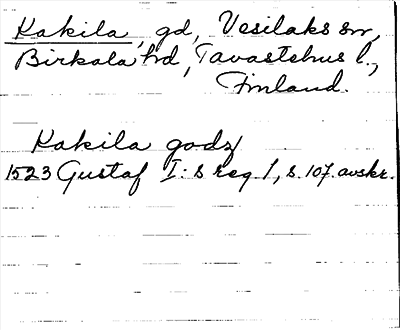 Kakila, gd, Vesilaks sn,
Birkala hd, Tavastehus l.,
Finland.
Kakila godz
1523 Gustaf I:s reg. 1, s. 107. avskr.